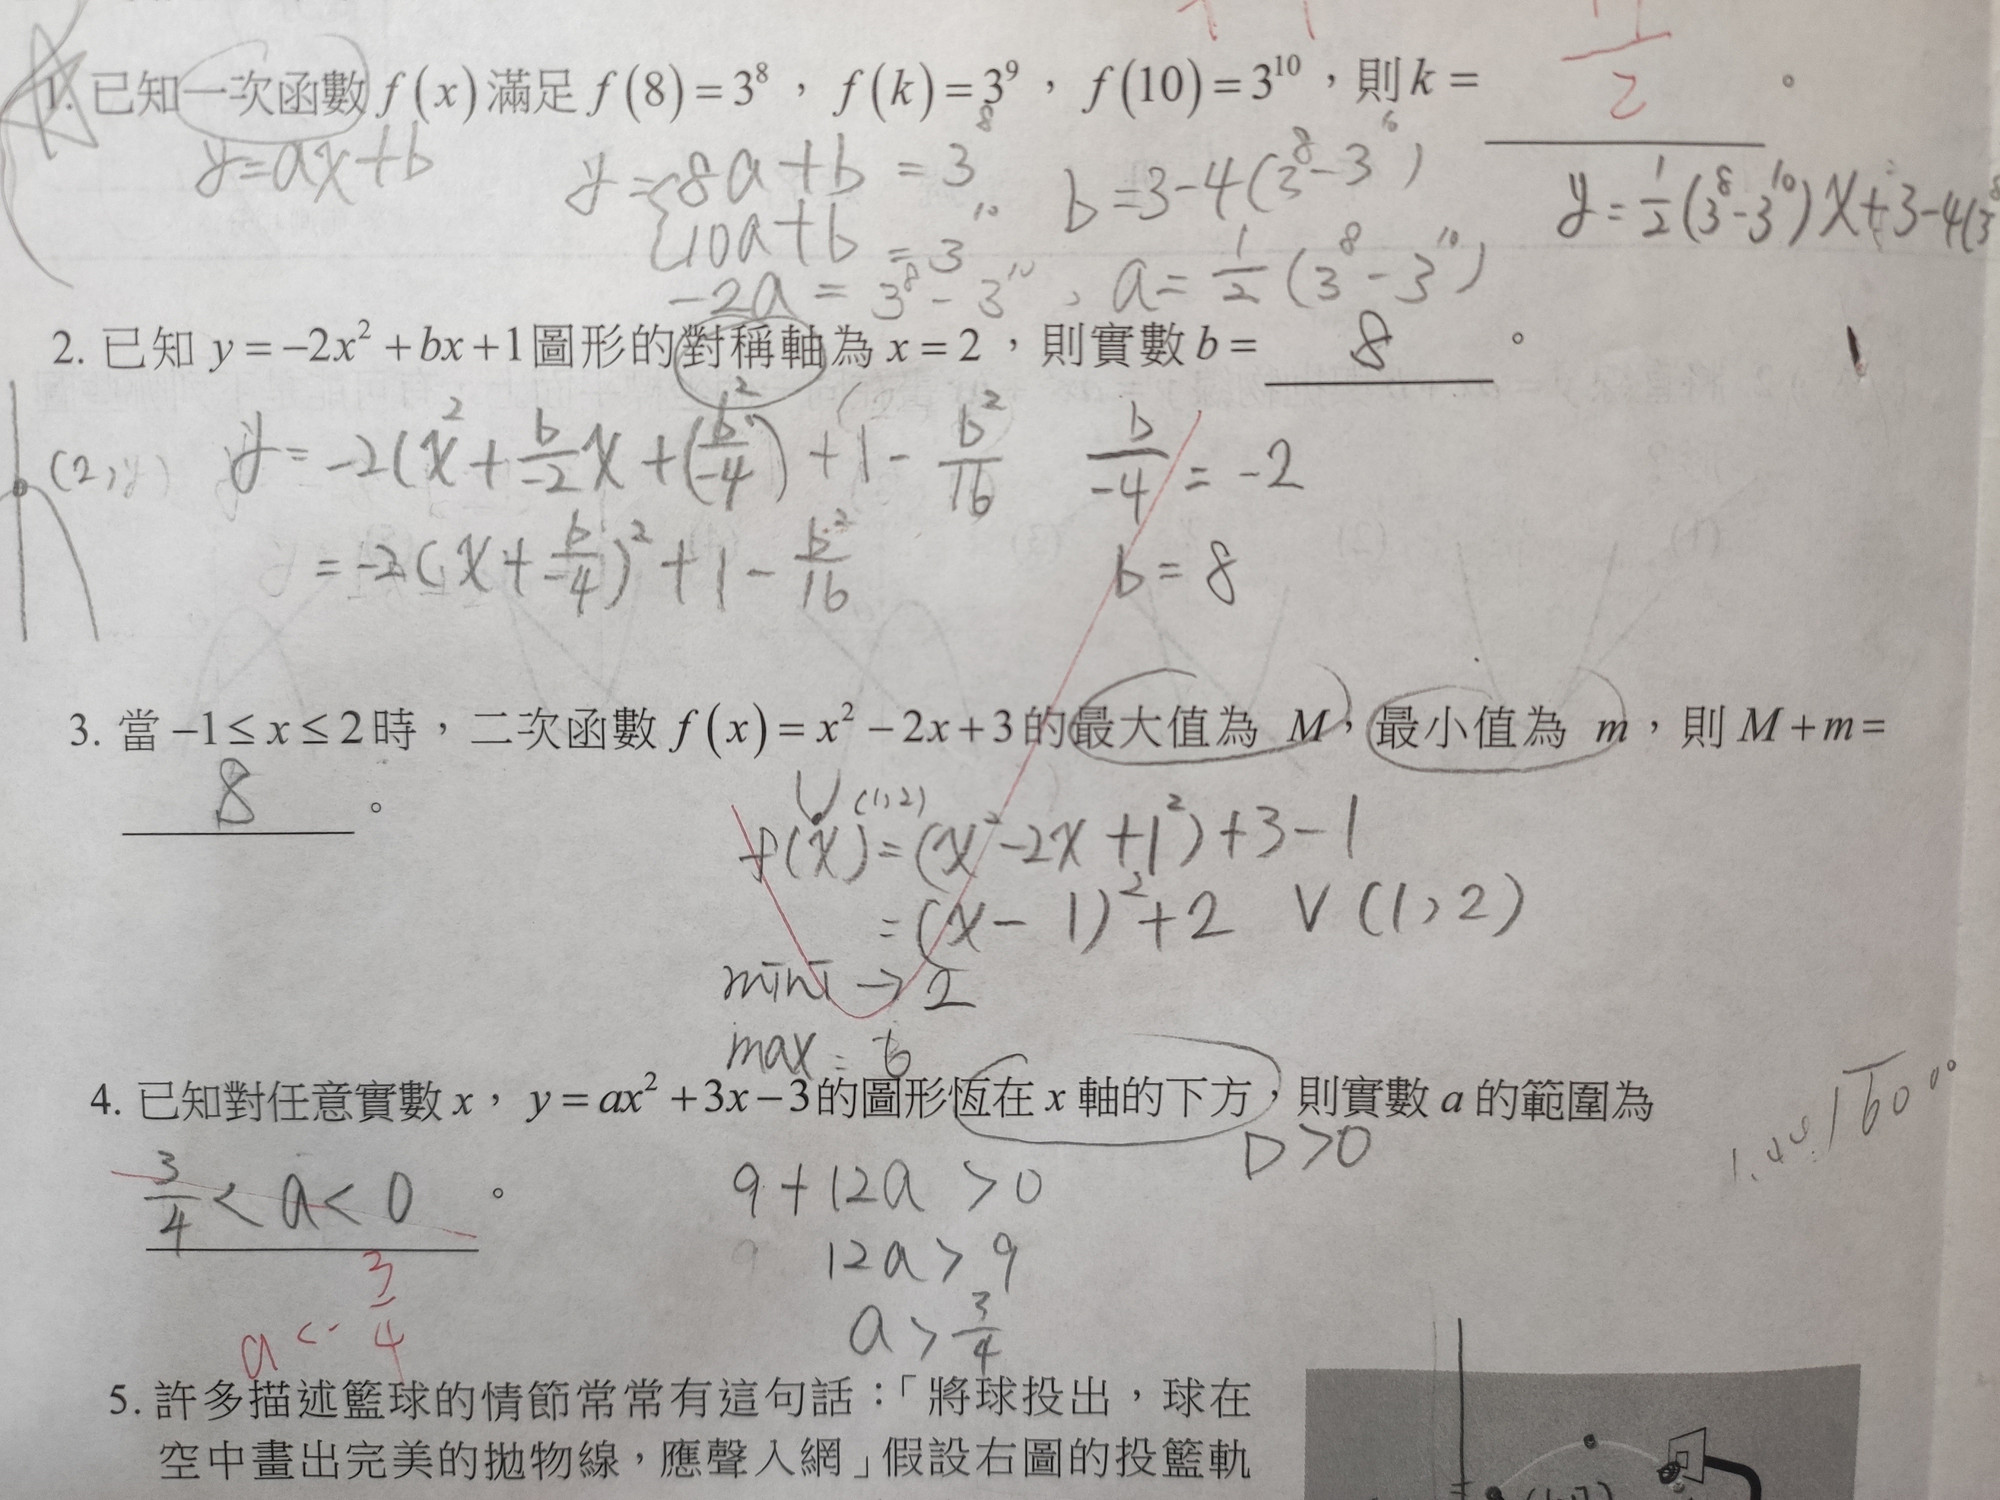 1. 已知一次函數 f(x) 滿足 f(8)=3⁸，f(k)=3⁹，f(10)=3¹⁰，則 k = 。
2
y=ax+b
y={8a+b=3⁸
b=3-4(3⁸-3¹⁰)
y=1/2(3⁸-3¹⁰)x+3-4(3⁸
10a+b=3¹⁰
-2a=3⁸-3¹⁰, a=1/2(3⁸-3¹⁰)
2. 已知 y=-2x²+bx+1 圖形的對稱軸為 x=2，則實數 b= 8 。
(2,y) y=-2(x²+b/-2 x+(b/-4)²)+1-b²/16
b/-4=-2
=-2(x+b/-4)²+1-b²/16
b=8
3. 當 -1≤x≤2 時，二次函數 f(x)=x²-2x+3 的最大值為 M，最小值為 m，則 M+m=
8 。
(1,2)
f(x)=(x²-2x+1²)+3-1
=(x-1)²+2 V(1,2)
mini→2
max=6
4. 已知對任意實數 x，y=ax²+3x-3 的圖形恆在 x 軸的下方，則實數 a 的範圍為
D>0
3/4<a<0 。
9+12a>0
12a>9
a>3/4
a<-3/4
5. 許多描述籃球的情節常常有這句話：「將球投出，球在
空中畫出完美的拋物線，應聲入網」假設右圖的投籃軌